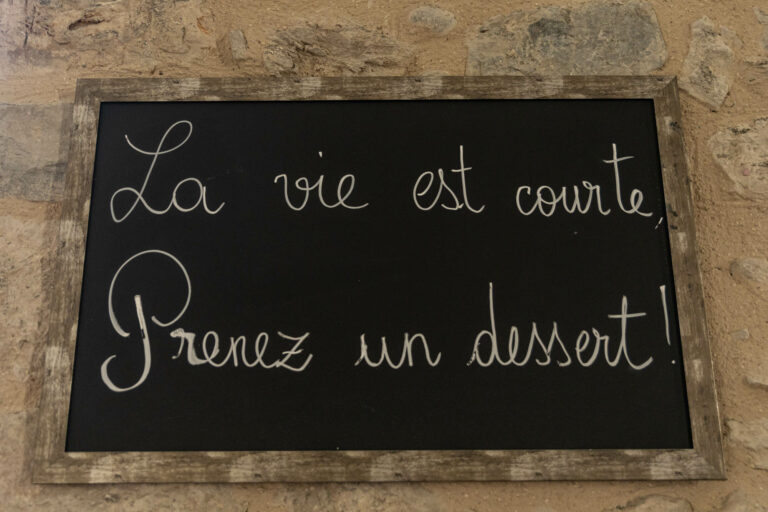 La vie est courte,
Prenez un dessert!